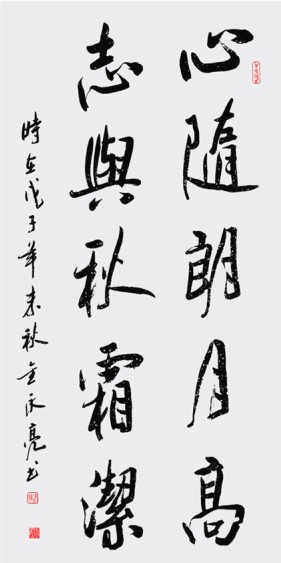 心隨朗月高
志與秋霜潔
時在戊子年末秋金永亮书